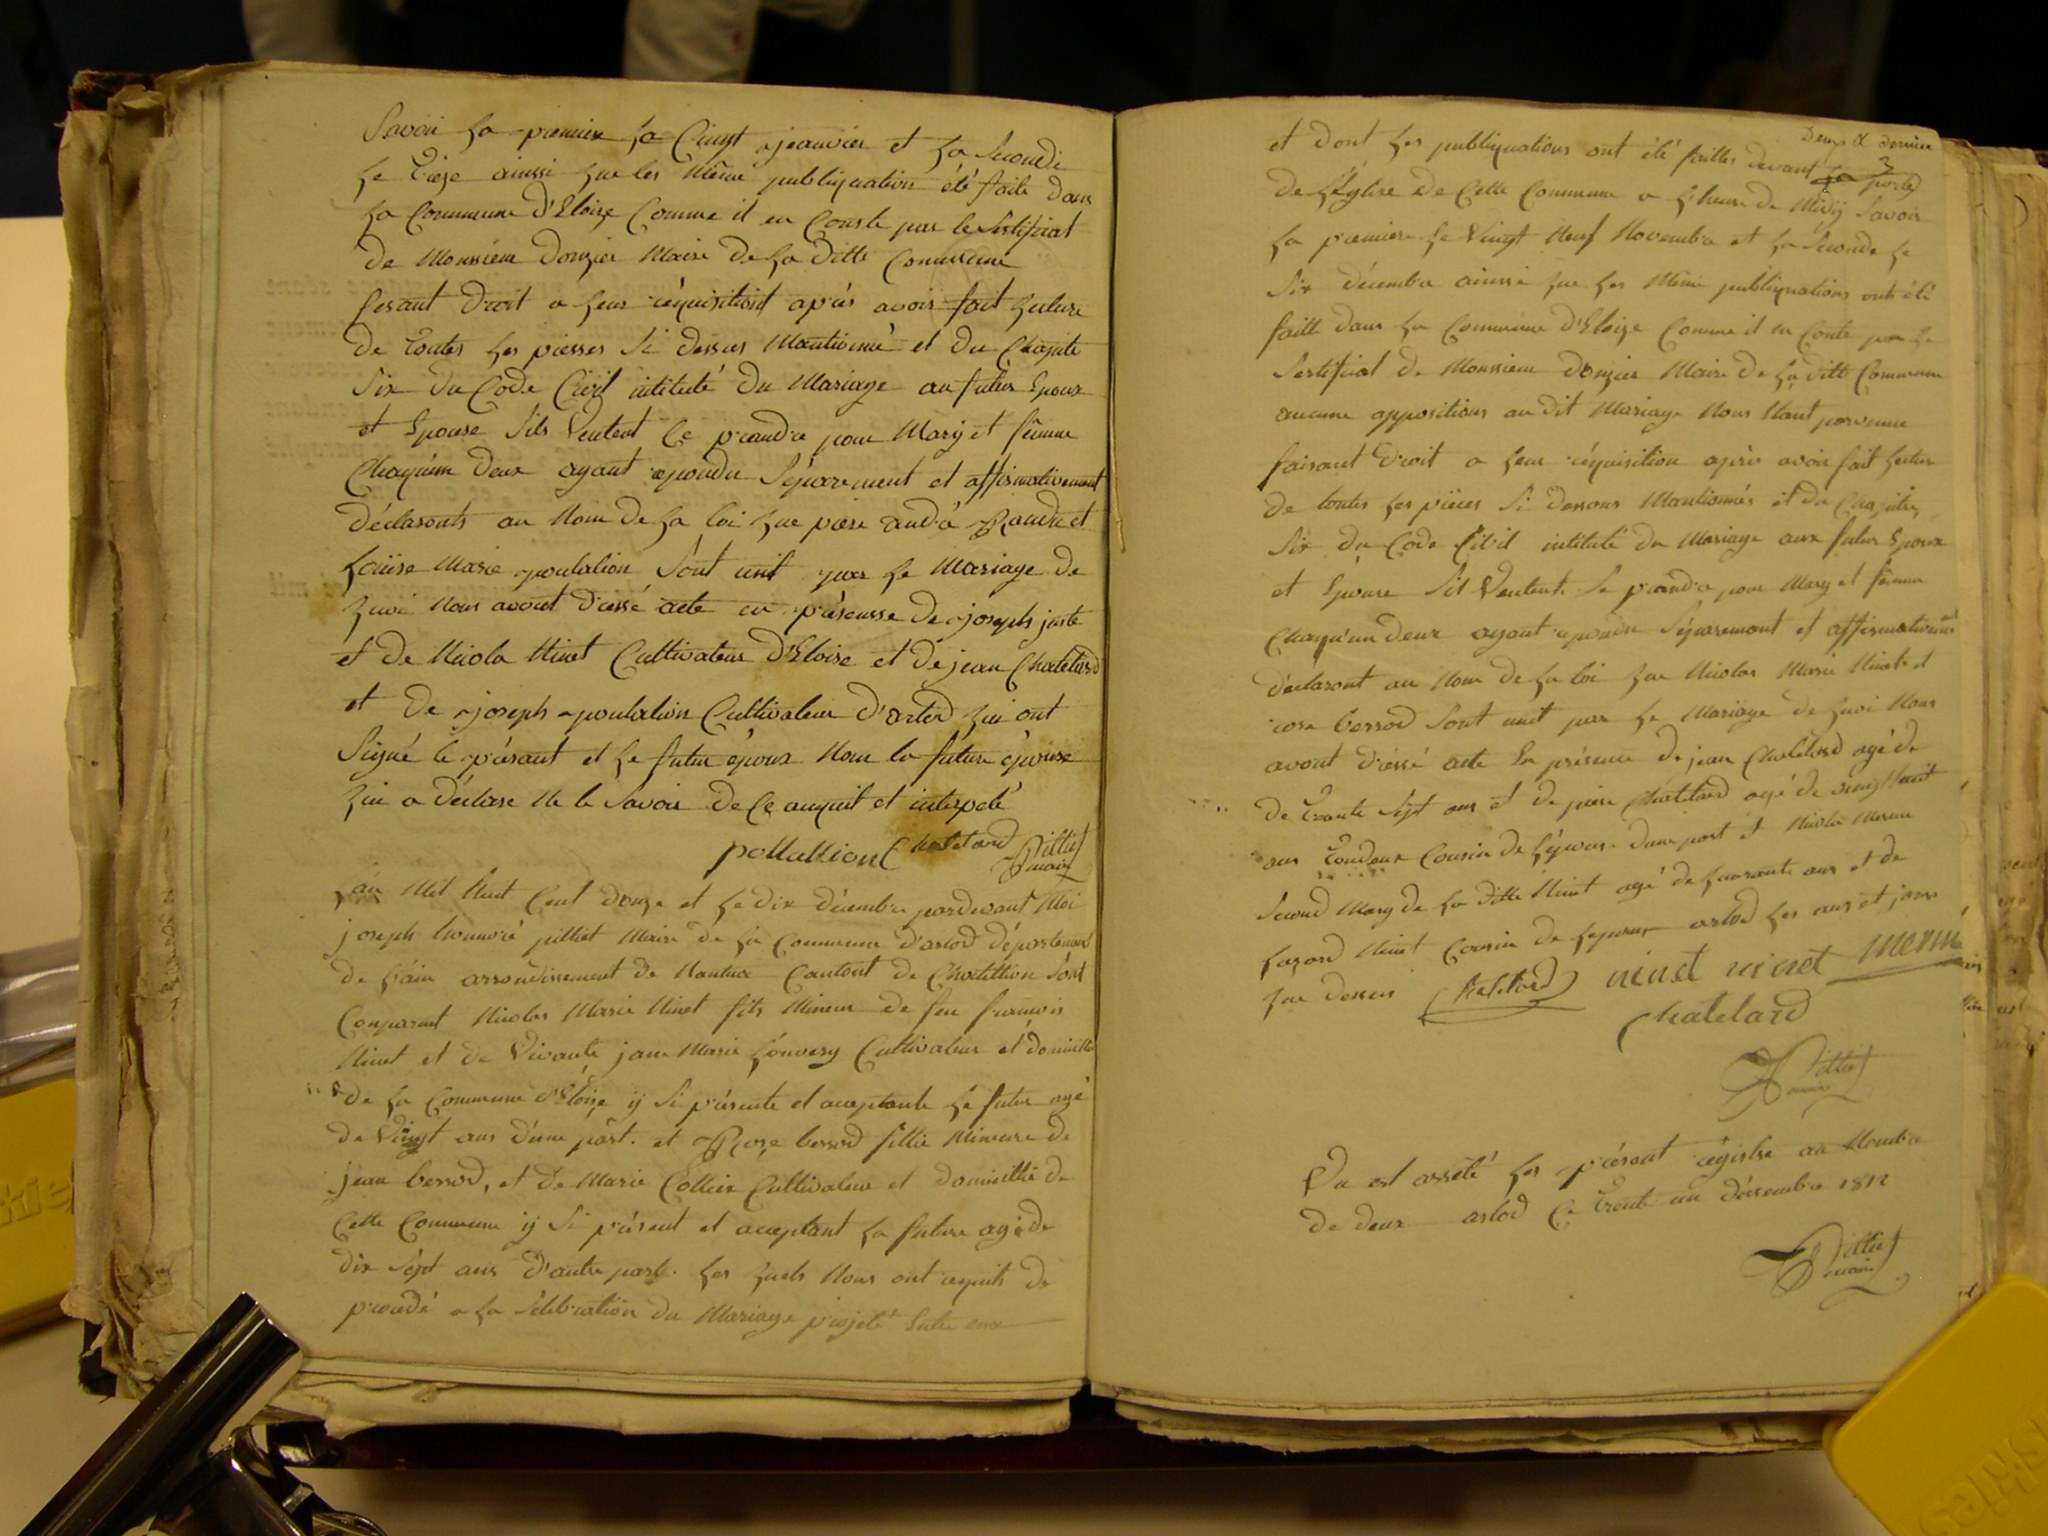 Savoir La premiere Le Cinqt jeanvier et La Seconde
Le treze ainssi que les même publiquation été faite dans
La Commune D'Eloize Comme il en Conste par le Sertificat
De Monsieur Donzier Maire De La Ditte Commune
fesant Droit a Leur réquisitiont aprés avoir fait Lecture
De toutes Les piesses Si dessus Mantionné et du Chapitre
Six Du Code Civil intitulé Du Mariage au futur Epoux
et Epouse Sils Veulent Ce prandre pour Mary et fêmme
Chaqu'un Deux ayant repondu Séparement et affirmativement
Déclaronts au Nom De La loi que pierre andré Roudet
Louise Marie poulalion Sont unit par Le Mariage De
quoi Nous avont D'essé acte en présensse De joseph juste
et De Nicola Ninet Cultivateur D'Eloise et De jean Chatelard
et De joseph poulalion Cultivateur D'arlod qui ont
Signé le présant et Le futur époux Nom la future épouse
qui a Déclare Ne le Savoir De Ce anquit et interpelé
pollallion Chatelard Pilliet
maire
L'an Mil huit Cent Douze et Le Dix décembre pardevant Moi
joseph honnoré pilliet Maire de La Commune D'arlod Département
De L'ain arrondissement de Nantua Cantont de Chatillion Sont
Comparut Nicolas Marie Ninet fils Mineur De feu francois
Ninet et de Vivante jane Marie Louvery Cultivateur et domicillié
De La Commune D'Eloize ij Si présente et aceptante Le futur agé
De Vingt ans D'une part. et Roze berrod fillie Mineure De
jean berrod, et De Marie Collier Cultivateur et Domicillié De
Cette Commune ij Si présent et aceptant La future agé De
Dix Sépt ans D'autre part. Les quels Nous ont requits De
procedé a La Sélébration du Mariage projeté Entre eux
Deux & dernier
3
et Dont Les publiquations ont été faittes devant La porte
De L'Église De Cette Commune a L'heure De Midij Savoir
La premiere Le Vingt Neuf Novembre et La Seconde Le
Six décembre ainssi que Les Même publiquations ont été
faitte Dans La Commune D'Eloize Comme il en Conte par Le
Sertificat De Monsieur Donzier Maire De La Ditte Commune
aucune appositions au Dit Mariage Nous Etant parvenue
faisant Droit a Leur réquisition aprés avoir fait Lecture
De toutes Les pièces Si Dessous Mantionnés et Du Chapitre
Six Du Code Civil intitulé Du Mariage aux futur Epoux
et Epouse Sil Veulent Se prandre pour Mary et fêmme
Chaqu'un Deux ayant repondu Séparemont et affirmativement
déclaront au Nom De La loi que Nicolas Marie Ninet et
rose berrod Sont unit par Le Mariage De quoi Nous
avont D'essé acte En présence De jean Chatelard agé De
De Trante Sept ans et De piere Chatelard agé De vingt huit
ans toudeux Cousin De L'épouse D'une part et Nicolas Mermet
Second Mary De La Ditte Ninet agé De quarante ans et De
Lazard Ninet Cousin De Lepoux arlod Les ans et jours
que Dessus Chatelard ninet ninet merm
Chatelard
Pilliet
maire
Vu est arrété Les présent régistre au Nombre
De Deux arlod Ce Trente un décembre 1812
Pilliet
maire